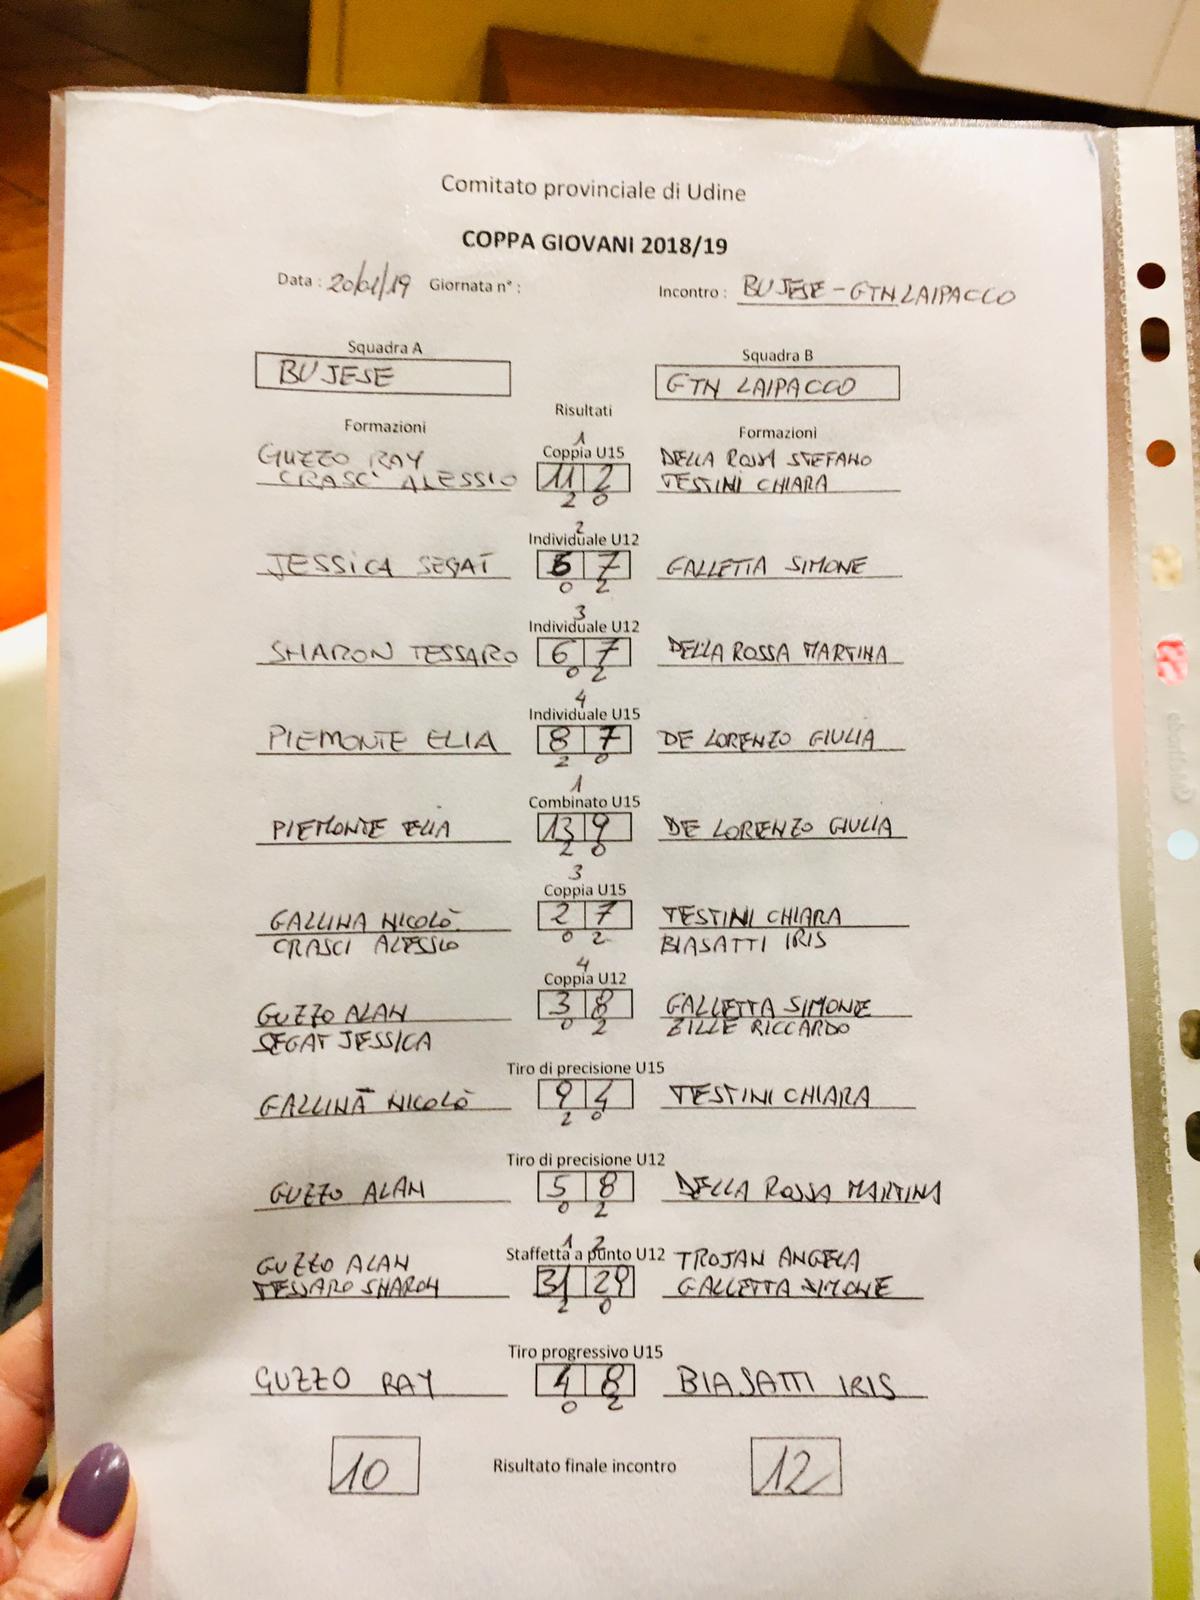 Comitato provinciale di Udine
COPPA GIOVANI 2018/19
Data : 20/01/19 Giornata n° : Incontro : BUJESE - GTN LAIPACCO
Squadra A Squadra B
BUJESE GTN LAIPACCO
Risultati
Formazioni Formazioni
1
GUZZO RAY Coppia U15 DELLA ROSSA STEFANO
CRASCI ALESSIO 11 2 TESTINI CHIARA
2 0
2
Individuale U12
JESSICA SEGAT 6 7 GALLETTA SIMONE
0 2
3
Individuale U12
SHARON TESSARO 6 7 DELLA ROSSA MARTINA
0 2
4
Individuale U15
PIEMONTE ELIA 8 7 DE LORENZO GIULIA
2 0
1
Combinato U15
PIEMONTE ELIA 13 9 DE LORENZO GIULIA
2 0
3
Coppia U15
GALLINA NICOLÒ 2 7 TESTINI CHIARA
CRASCI ALESSIO 0 2 BIASATTI IRIS
4
Coppia U12
GUZZO ALAN 3 8 GALLETTA SIMONE
SEGAT JESSICA 0 2 ZILLE RICCARDO
Tiro di precisione U15
GALLINA NICOLÒ 9 4 TESTINI CHIARA
2 0
Tiro di precisione U12
GUZZO ALAN 5 8 DELLA ROSSA MARTINA
0 2
1 2
GUZZO ALAN Staffetta a punto U12 TROJAN ANGELA
TESSARO SHARON 31 29 GALLETTA SIMONE
2 0
Tiro progressivo U15
GUZZO RAY 4 8 BIASATTI IRIS
0 2
10 Risultato finale incontro 12